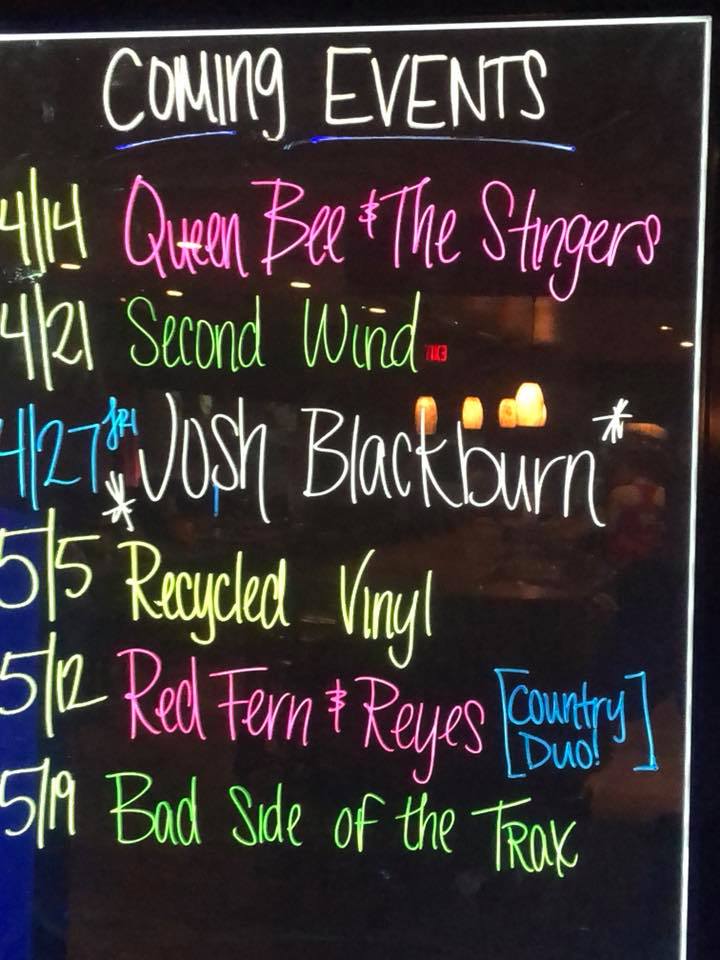 COMING EVENTS
4/14 Queen Bee & The Stingers
4/21 Second Wind
4/27 FRI *Josh Blackburn*
5/5 Recycled Vinyl
5/12 Red Fern & Reyes [Country Duo!]
5/19 Bad Side of the Trax